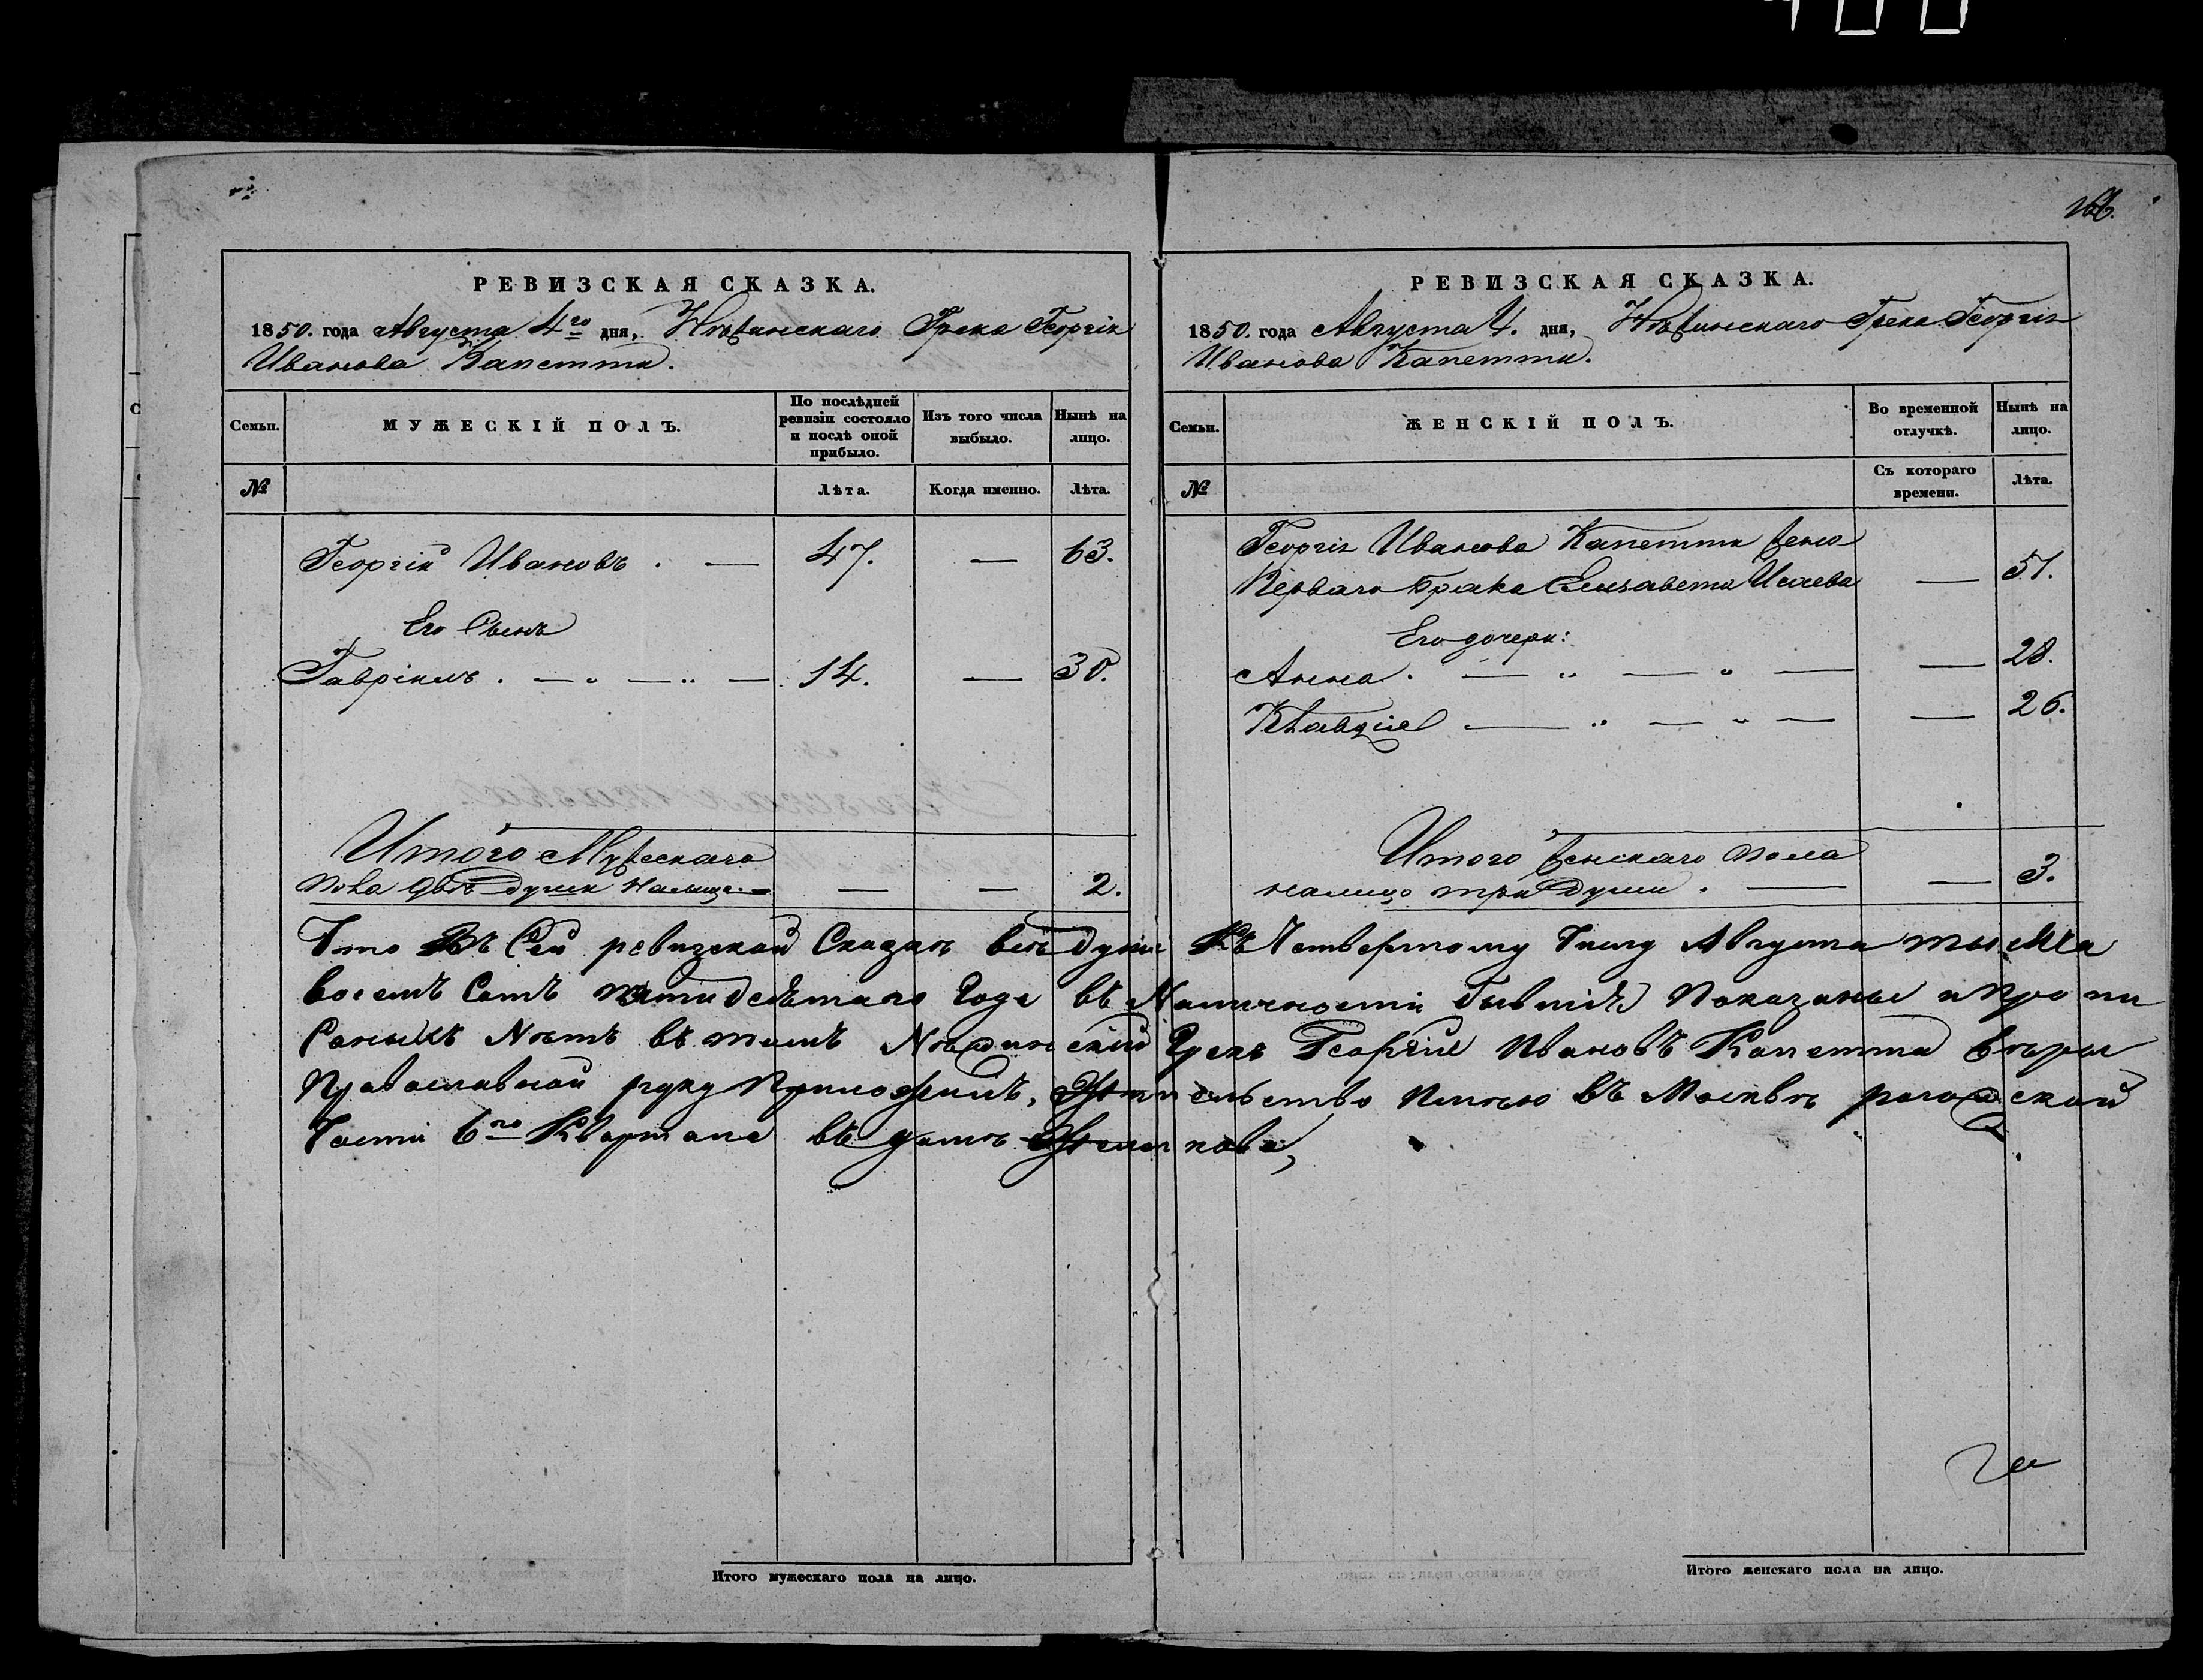 РЕВИЗСКАЯ СКАЗКА.
1850. года Августа 4го дня, Нѣжинскаго Грека Георгія
Иванова Капетти.
Семьи.
МУЖЕСКІЙ ПОЛЪ.
По послѣдней ревизіи состояло и послѣ оной прибыло.
Изъ того числа выбыло.
Нынѣ на лицо.
№
Лѣта.
Когда именно.
Лѣта.
Георгій Ивановъ . — 47. — 63.
Его Сынъ
Гавріилъ . — „ — „ — 14. — 30.
Итого Мужескаго
пола двѣ души налицо — — — 2.
РЕВИЗСКАЯ СКАЗКА.
1850. года Августа 4. дня, Нѣжинскаго Грека Георгія
Иванова Капетти.
Семьи.
ЖЕНСКІЙ ПОЛЪ.
Во временной отлучкѣ.
Нынѣ на лицо.
№
Съ котораго времени.
Лѣта.
Георгія Иванова Капетти жена
Перваго брака Елизавета Исаева — 51.
Его дочери:
Анна . — „ — „ — — 28.
Клавдія — „ — „ — — 26.
Итого женскаго пола
налицо три души . — — 3.
Что Въ Сей ревизской Сказкѣ всѣ души Къ Четвертому Числу Августа тысяча
восемъ Сотъ пятидесѣтаго Года въ Наличности бывшіѣ Показаны и пропи
Саныхъ Нѣтъ въ томъ Нѣжинскій Грекъ Георгій Ивановъ Капетта
Православной руку приложилъ, Жительство Имѣю въ Москвѣ рогожской
Части 6го Квартала въ домѣ
Итого мужескаго пола на лицо.
Итого женскаго пола на лицо.